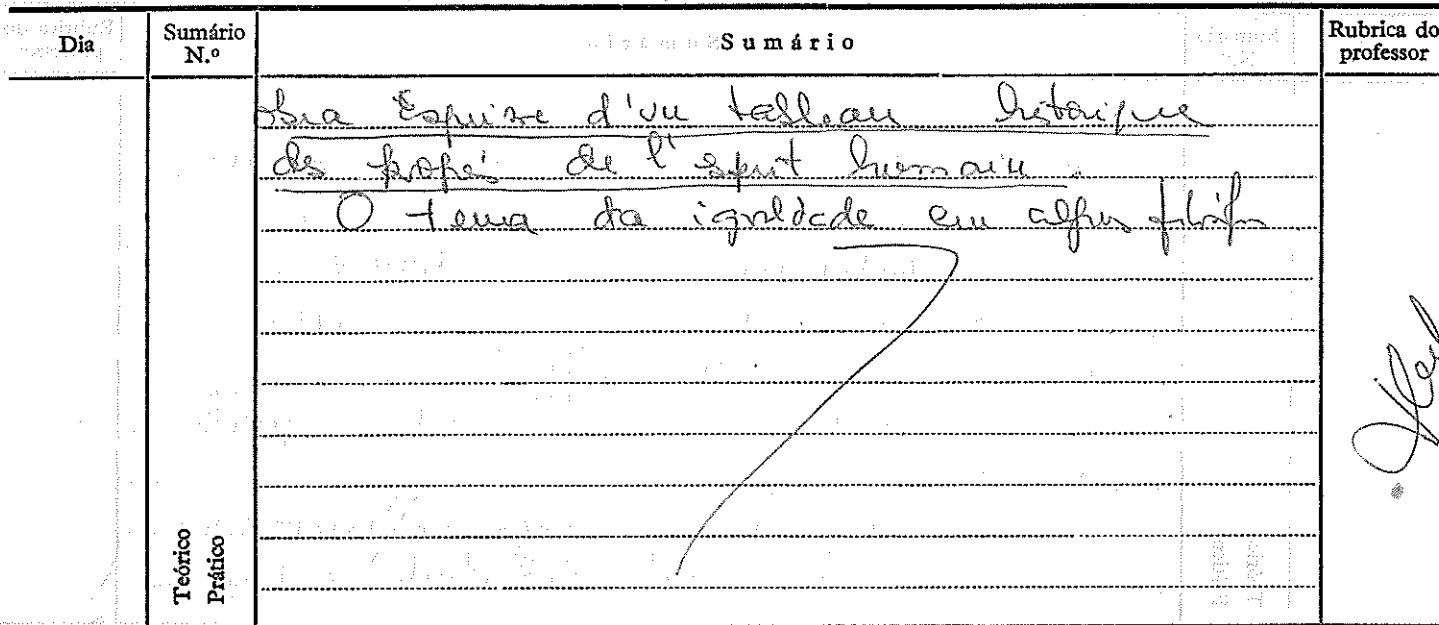 Dia
Sumário N.º
Sumário
Rubrica do professor
obra Esquisse d'un tableau historique
des progrès de l'esprit humain.
O tema da igualdade em alguns filósofos
Teórico
Prático